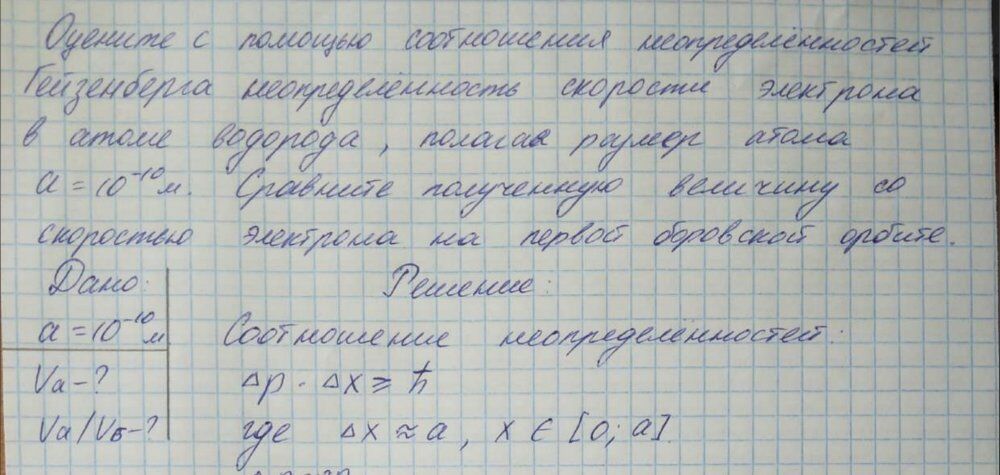 Оцените с помощью соотношения неопределённостей
Гейзенберга неопределённость скорости электрона
в атоме водорода, полагая размер атома
a = 10⁻¹⁰ м. Сравните полученную величину со
скоростью электрона на первой боровской орбите.
Дано: Решение:
a = 10⁻¹⁰ м Соотношение неопределённостей:
Va - ? Δp · Δx ≥ ħ
Va/Vб - ? где Δx ≈ a, x ∈ [0; a].